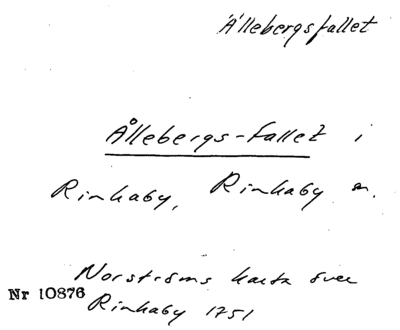 Ållebergsfallet
Ållebergs-fallet i
Rinkaby, Rinkaby sn.
Norströms karta över
Nr 10876
Rinkaby 1751